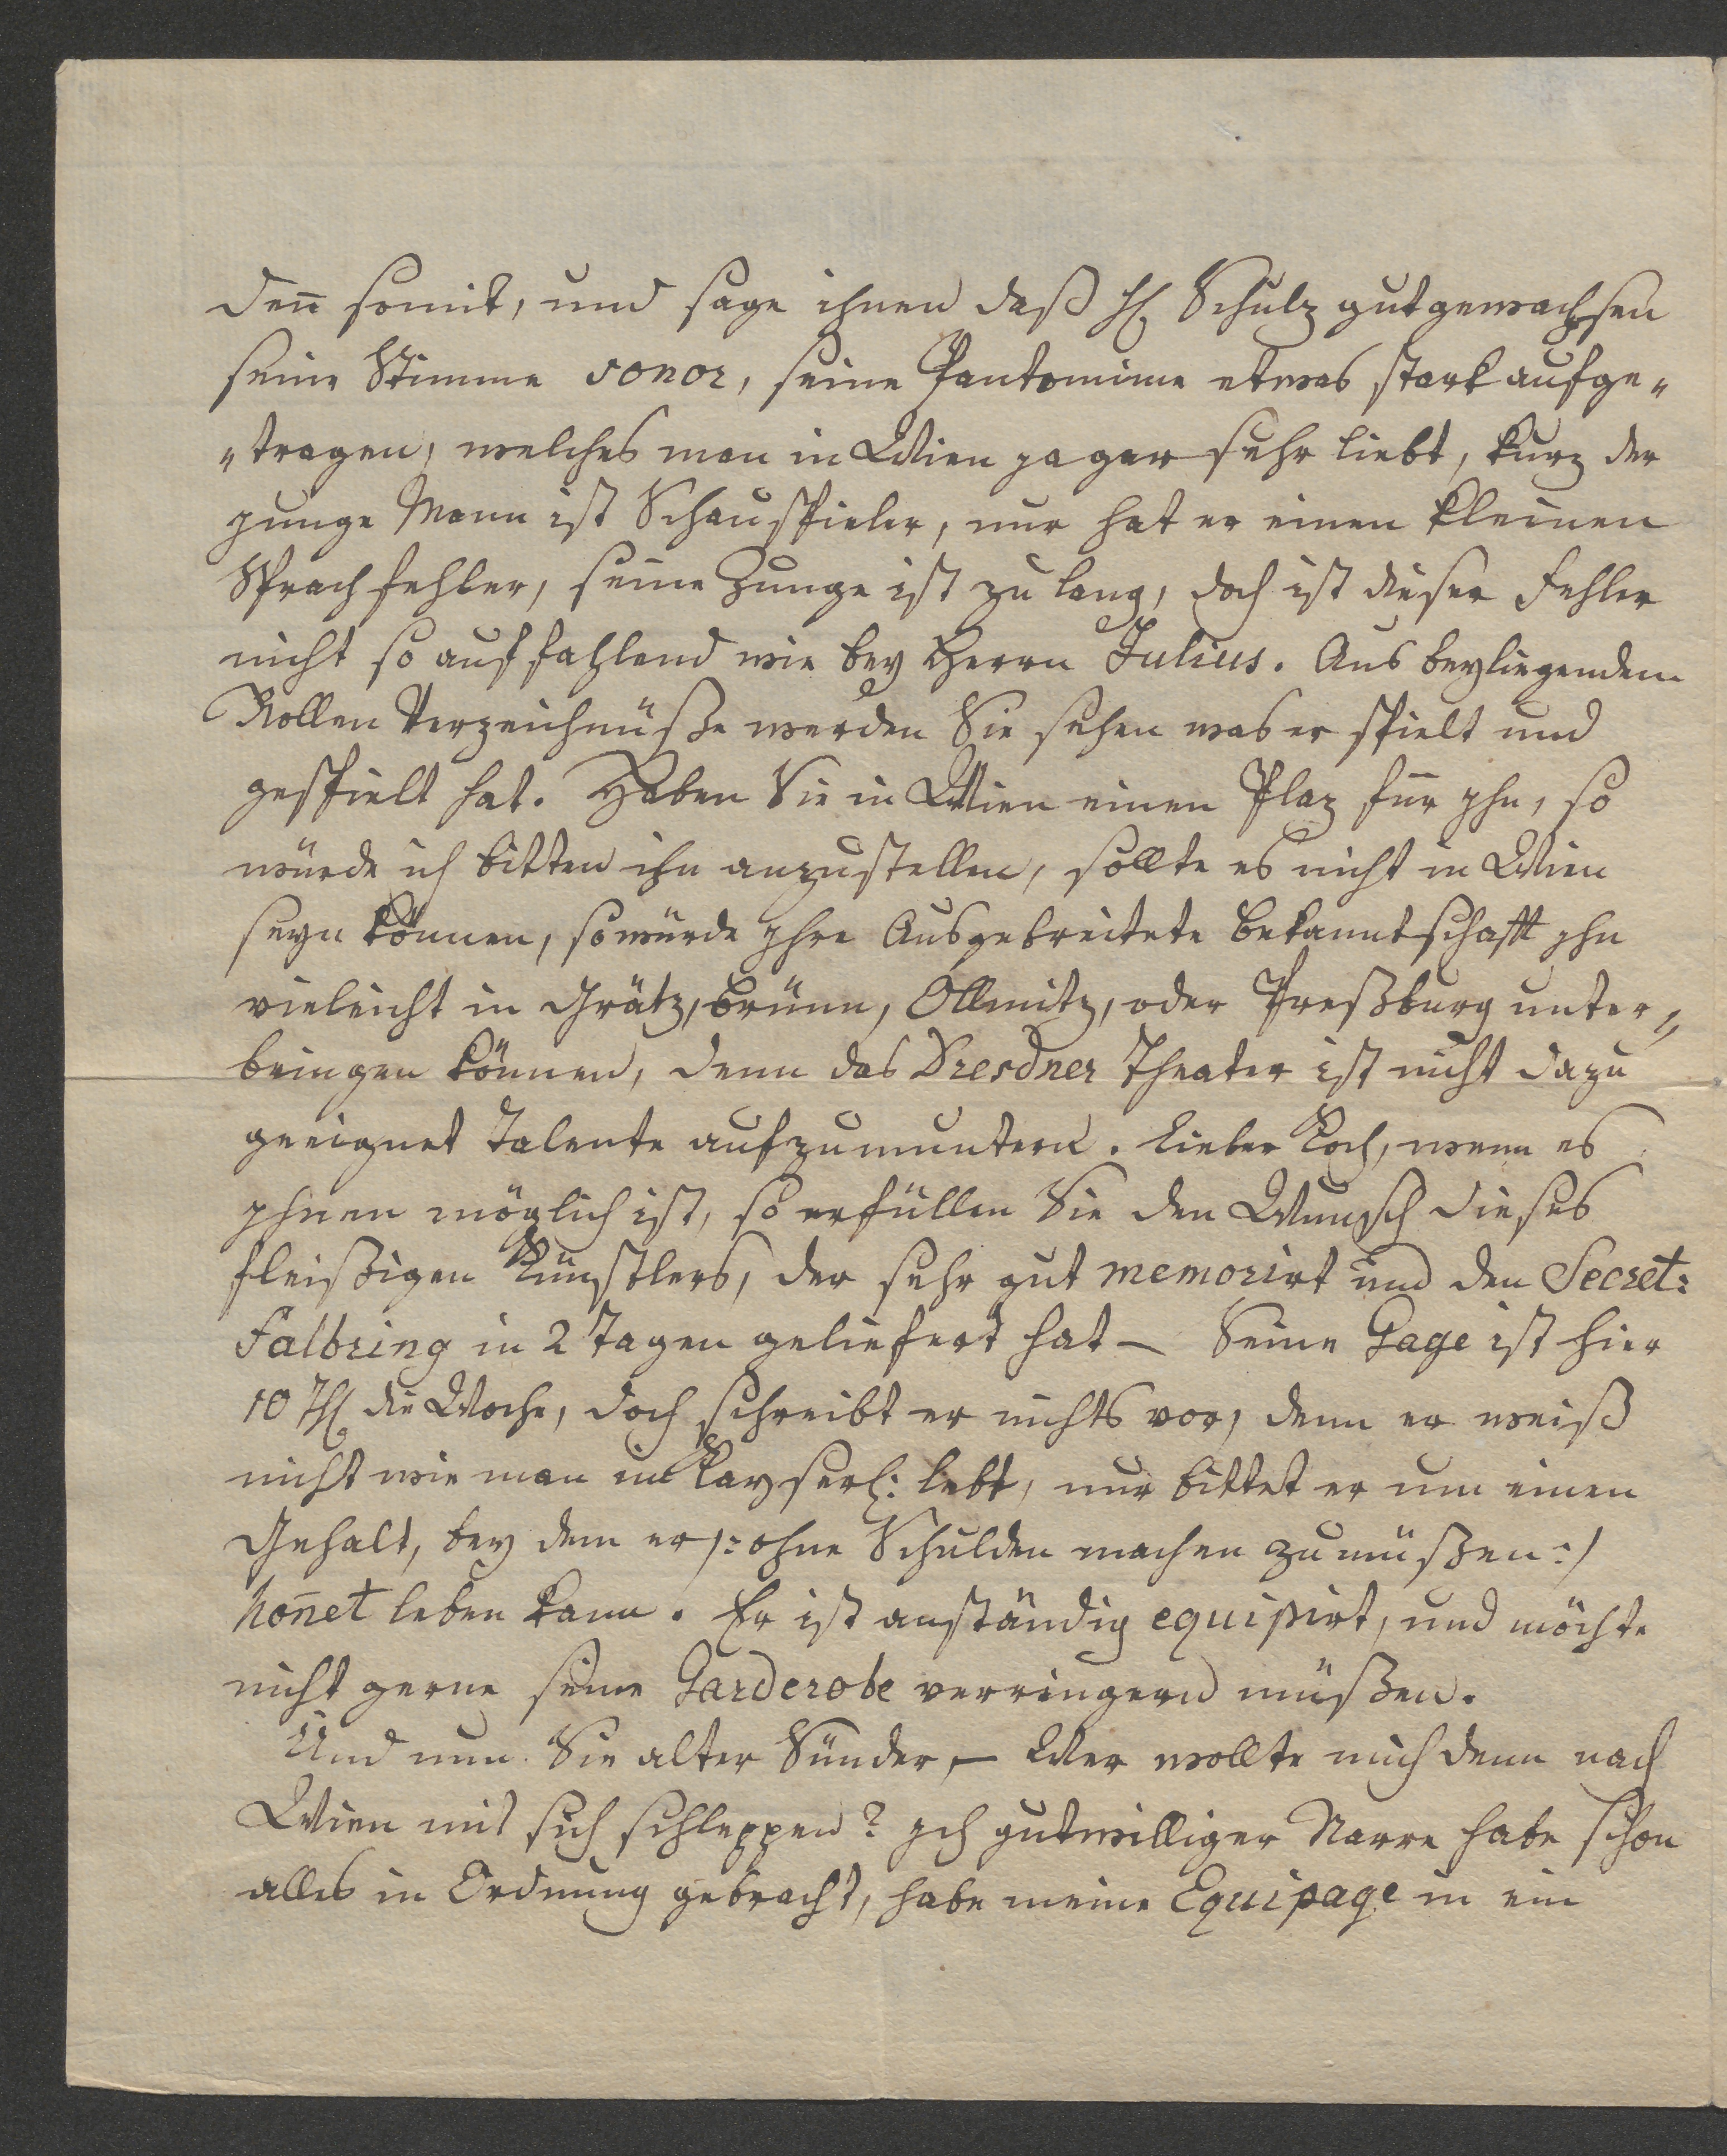 den̄ somit, und sage ihnen daß H: Schulz gut gewachsen
seine Stimme sonor, seine Pantomime etwas stark aufge„
„tragen, welches man in Wien ja gar sehr liebt, kurz der
junge Mann ist Schauspieler, nur hat er einen kleinen
Sprachfehler, seine Zunge ist zu lang, doch ist dieser Fehler
nicht so auffahlend wie bey Herrn Julius. Aus beyliegendem
Rollen Verzeichnüße werden Sie sehen was er spielt und
gespielt hat. Haben Sie in Wien einen Plaz für jhn, so
würde ich bitten ihn anzustellen, sollte es nicht in Wien
seyn können, so würde jhre Ausgebreitete Bekanntschafft jhn
vieleicht in Grätz, Brünn, Ollmitz, oder Preßburg unter„
bringen können, denn das Dresdner Theater ist nicht dazu
geeignet Talente aufzumuntern. Lieber Koch, wenn es
jhnen möglich ist, so erfüllen Sie den Wunsch dieses
fleißigen Künstlers, der sehr gut memorirt und den Secret:
Falbring in 2 Tagen geliefert hat — Seine Gage ist hier
10 Th: die Woche, doch schreibt er nichts vor, denn er weiß
nicht wie man im Kayserl: lebt, nur bittet er um einen
Gehalt, bey dem er /: ohne Schulden machen zu müßen :/
hon̄et leben kann. Er ist anständig equipirt, und möchte
nicht gerne seine Garderobe verringern müßen.
Und nun Sie alter Sünder, — Wer wollte mich denn nach
Wien mit sich schleppen? jch gutwilliger Narre habe schon
alles in Ordnung gebracht, habe meine Equipage in ein